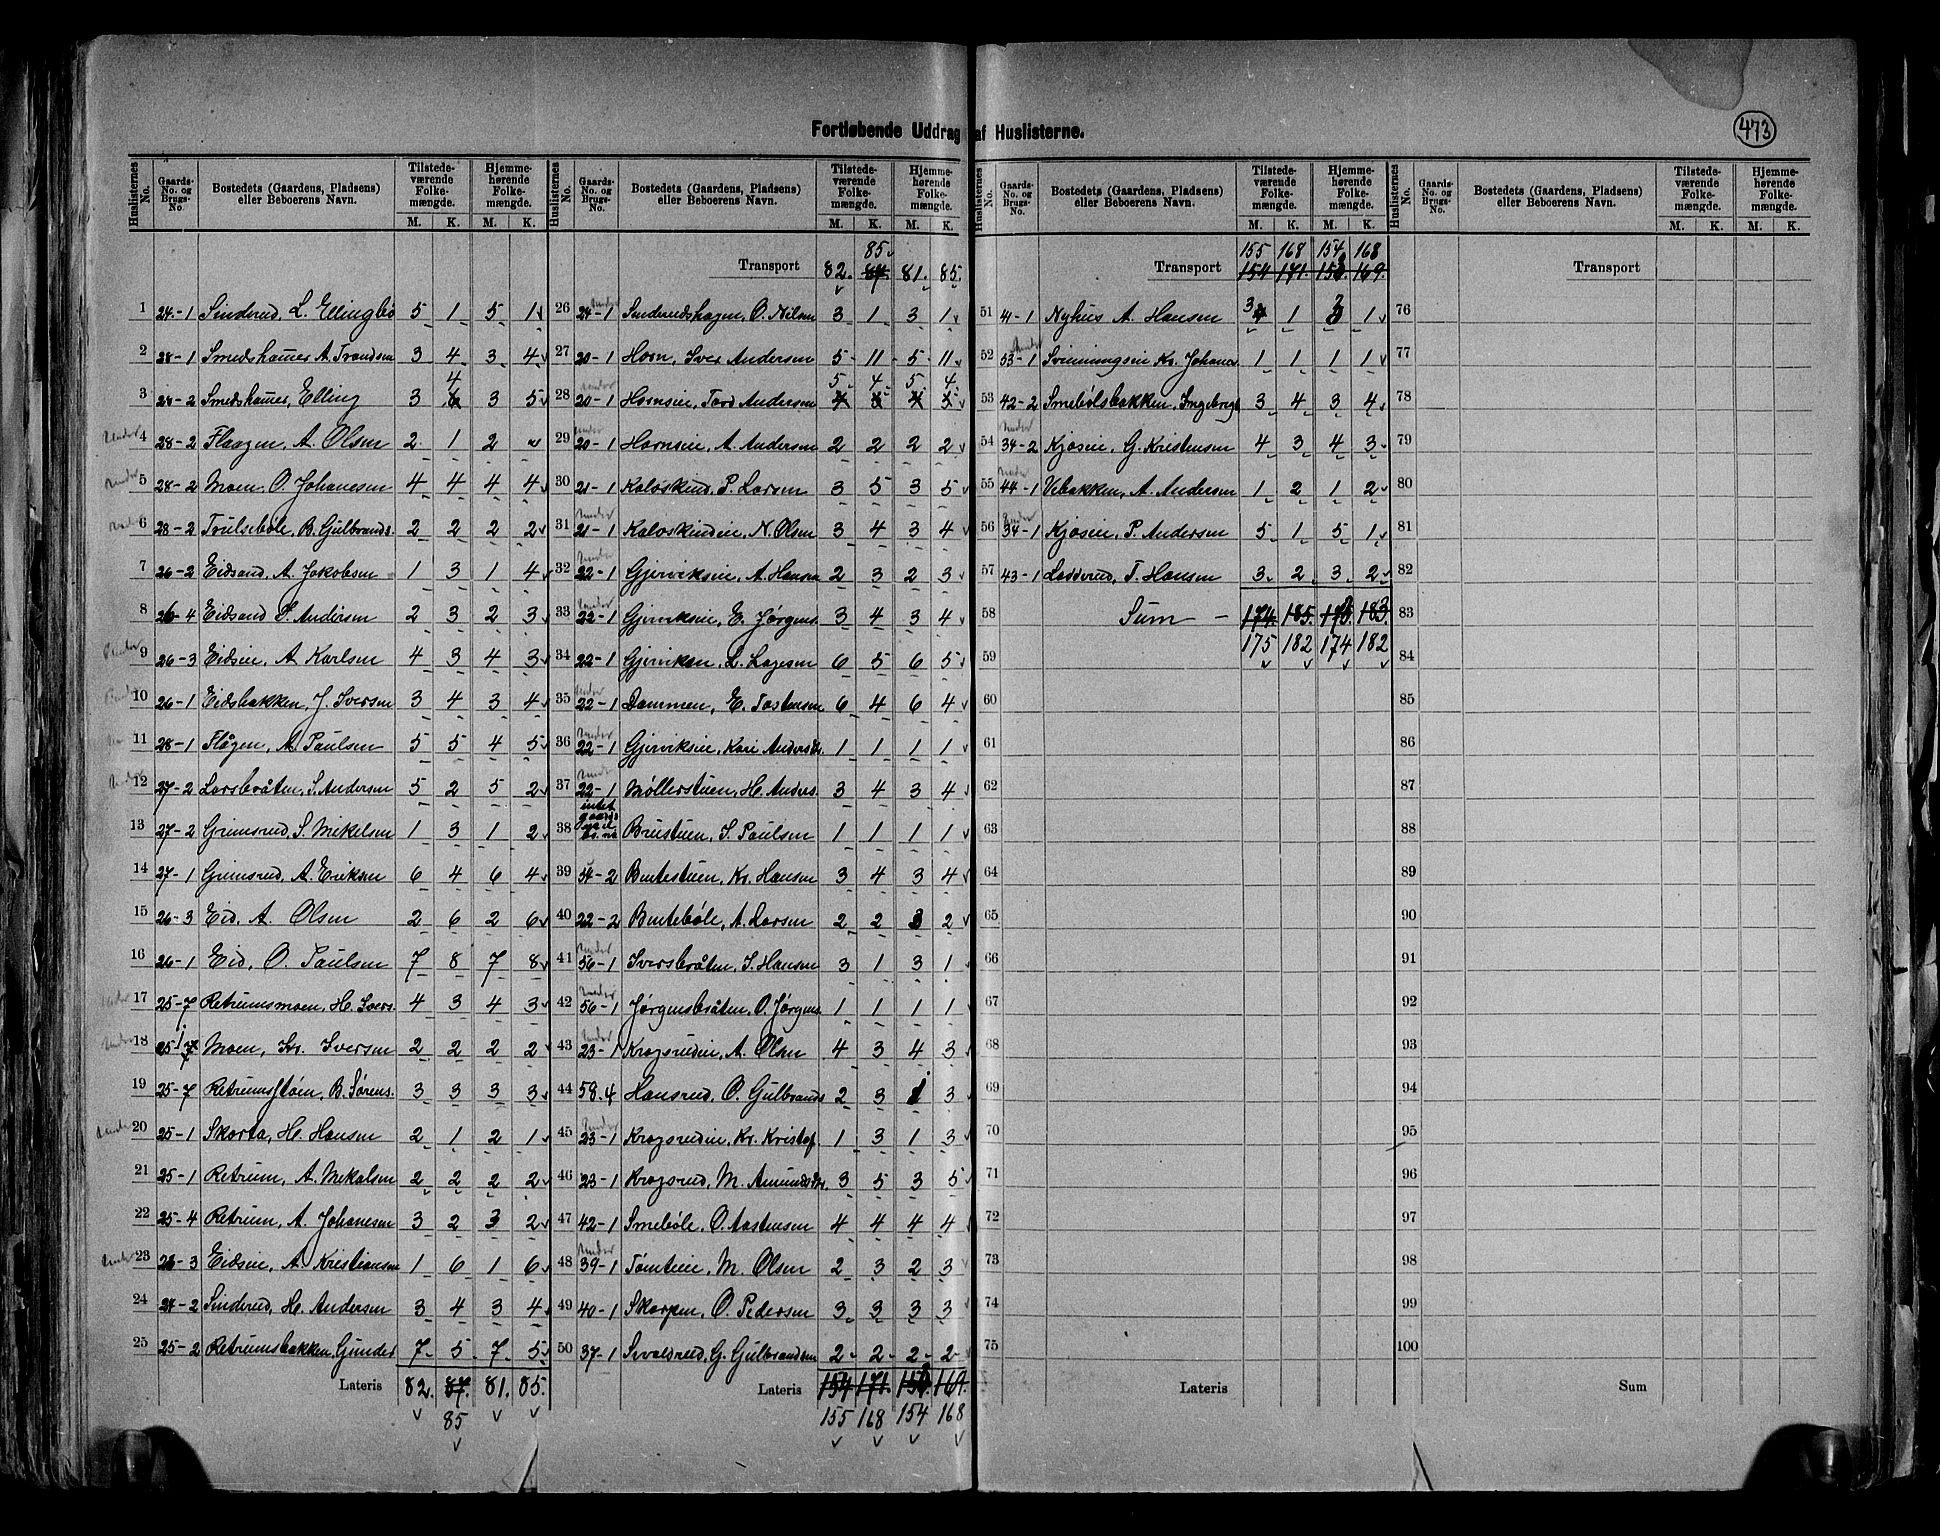 Fortløbende Uddrag af Huslisterne.
473
Huslisternes No. Gaards- No. og Brugs- No. Bostedets (Gaardens, Pladsens) eller Beboerens Navn. Tilstede- værende Folke- mængde. M. K. Hjemme- hørende Folke- mængde. M. K.
1 24-1 Sinderud, L. Ellingbø 5 1 5 1
2 28-1 Smedshamer A. Trondsen 3 4 3 4
3 28-2 Smedshamer, Elling 3 4 3 5
Under 4 28-2 Flaagen, A. Olsen 2 1 2
Under 5 28-2 Moen, O. Johanesen 4 4 4 4
Under 6 28-2 Trulsebøle, B. Gulbrands. 2 2 2 2
7 26-2 Eidsand, A. Jakobsen 1 3 1 4
8 26-4 Eidsand S. Andersen 2 3 2 3
Under 9 26-3 Eidseie, A. Karlsen 4 3 4 3
Under 10 26-1 Eidsbakken, J. Iversen 3 4 3 4
11 28-1 Flågen, A. Paulsen 5 5 4 5
Under 12 27-2 Larsbråten, S. Andersen 5 2 5 2
13 27-2 Grimsrud, S. Mikelsen 1 3 1 2
14 27-1 Grimsrud, A. Eriksen 6 4 6 4
15 26-3 Eid, A. Olsen 2 6 2 6
16 26-1 Eid, O. Paulsen 7 8 7 8
Under 17 25-7 Retrumsmoen, H. Ivers. 4 3 4 3
Under 18 25-1 Moen, Iv. Iversen 2 2 2 2
19 25-7 Retrumsstøen, B. Sørens. 3 3 3 3
Under 20 25-1 Skorta, H. Hansen 2 1 2 1
21 25-1 Retrum, A. Mikalsen 2 2 2 2
22 25-4 Retrum, A. Johanesen 3 2 3 2
Under 23 26-3 Eidseie, A. Kristiansen 1 6 1 6
24 24-2 Sinderud, H. Andersen 3 4 3 4
25 25-2 Retrumsbakken, Gunder 7 5 7 5
Lateris 82. 87. 81. 85.
85
Huslisternes No. Gaards- No. og Brugs- No. Bostedets (Gaardens, Pladsens) eller Beboerens Navn. Tilstede- værende Folke- mængde. M. K. Hjemme- hørende Folke- mængde. M. K.
85
Transport 82. 87 81. 85.
26 Under 24-1 Sinderudshagen, O. Nilsen 3 1 3 1
27 20-1 Horn, Iver Andersen 5 11 5 11
28 Under 20-1 Hornseie, Tord Andersen 5 4 5 4
29 Under 20-1 Hornseie, A. Andersen 2 2 2 2
30 21-1 Kaloskind, P. Larsen 3 5 3 5
31 Under 21-1 Kaloskindeie, N. Olsen 3 4 3 4
32 Under 22-1 Gjervikseie, A. Hansen 2 3 2 3
33 Under 22-1 Gjervikseie, E. Jørgens. 3 4 3 4
34 22-1 Gjerviken, L. Lagesen 6 5 6 5
35 Under 22-1 Dammen, E. Tostensen 6 4 6 4
36 Under 22-1 Gjervikseie, Kari Andersdtr. 1 1 1 1
37 Under 22-1 Møllerstuen, H. Anders. 3 4 3 4
38 intet Brustuen, S. Paulsen 1 1 1 1
39 54-2 Bentestuen, Kr. Hansen 3 4 3 4
40 22-2 Bentebøle, A. Larsen 2 2 3 2
41 Under 56-1 Iversbråten, S. Hansen 3 1 3 1
42 Under 56-1 Jørgensbråten, O. Jørgens. 1 1 1 1
43 Under 23-1 Krogsrudeie, A. Olsen 4 3 4 3
44 58.4 Hansrud, O. Gulbrands 2 3 1 3
45 Under 23-1 Krogsrudeie, Kr. Kristof. 1 3 1 3
46 23-1 Krogsrud, M. Amundsdtr. 3 5 3 5
47 42-1 Smebøle, O. Aastensen 4 4 4 4
48 Under 39-1 Tømteeie, M. Olsen 2 3 2 3
49 40-1 Skorpen, O. Pedersen 3 3 3 3
50 37-1 Sevaldrud, G. Gulbrandsen 2 2 2 2
Lateris 154 171. 153 169.
155 168 154 168
Huslisternes No. Gaards- No. og Brugs- No. Bostedets (Gaardens, Pladsens) eller Beboerens Navn. Tilstede- værende Folke- mængde. M. K. Hjemme- hørende Folke- mængde. M. K.
155 168 154 168
Transport 154 171. 153 169.
51 41-1 Nyhus A. Hansen 3 1 3 1
52 Under 53-1 Svinningseie Kr. Johanes. 1 1 1 1
53 42-2 Smebølsbakken, Ingebregt 3 4 3 4
54 Under 34-2 Kjøseie, G. Kristensen 4 3 4 3
55 Under 44-1 Vebakken, A. Andersen 1 2 1 2
56 Under 34-1 Kjøseie, P. Andersen 5 1 5 1
57 43-1 Lodderud, T. Hansen 3 2 3 2
58 Sum 174. 185. 173 183.
59 175 182 174 182
60
61
62
63
64
65
66
67
68
69
70
71
72
73
74
75
Lateris
Huslisternes No. Gaards- No. og Brugs- No. Bostedets (Gaardens, Pladsens) eller Beboerens Navn. Tilstede- værende Folke- mængde. M. K. Hjemme- hørende Folke- mængde. M. K.
Transport
76
77
78
79
80
81
82
83
84
85
86
87
88
89
90
91
92
93
94
95
96
97
98
99
100
Sum